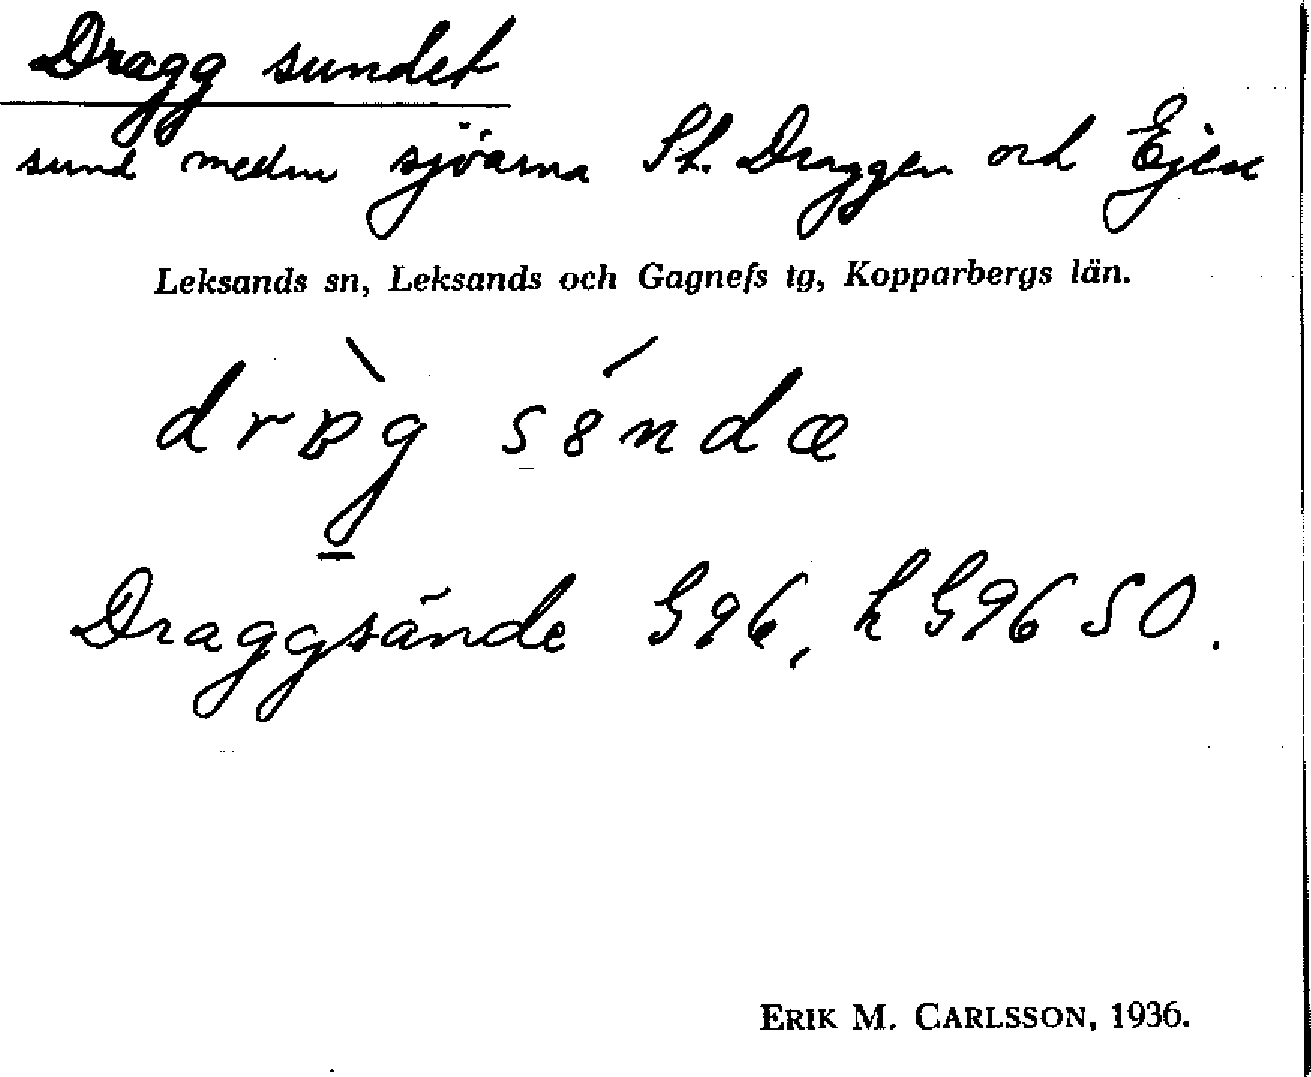 Dragg sundet
sund mellan sjöarna St. Draggen och Ejen
Leksands sn, Leksands och Gagnefs tg, Kopparbergs län.
Draggsände G96, h G96 SO.
ERIK M. CARLSSON, 1936.